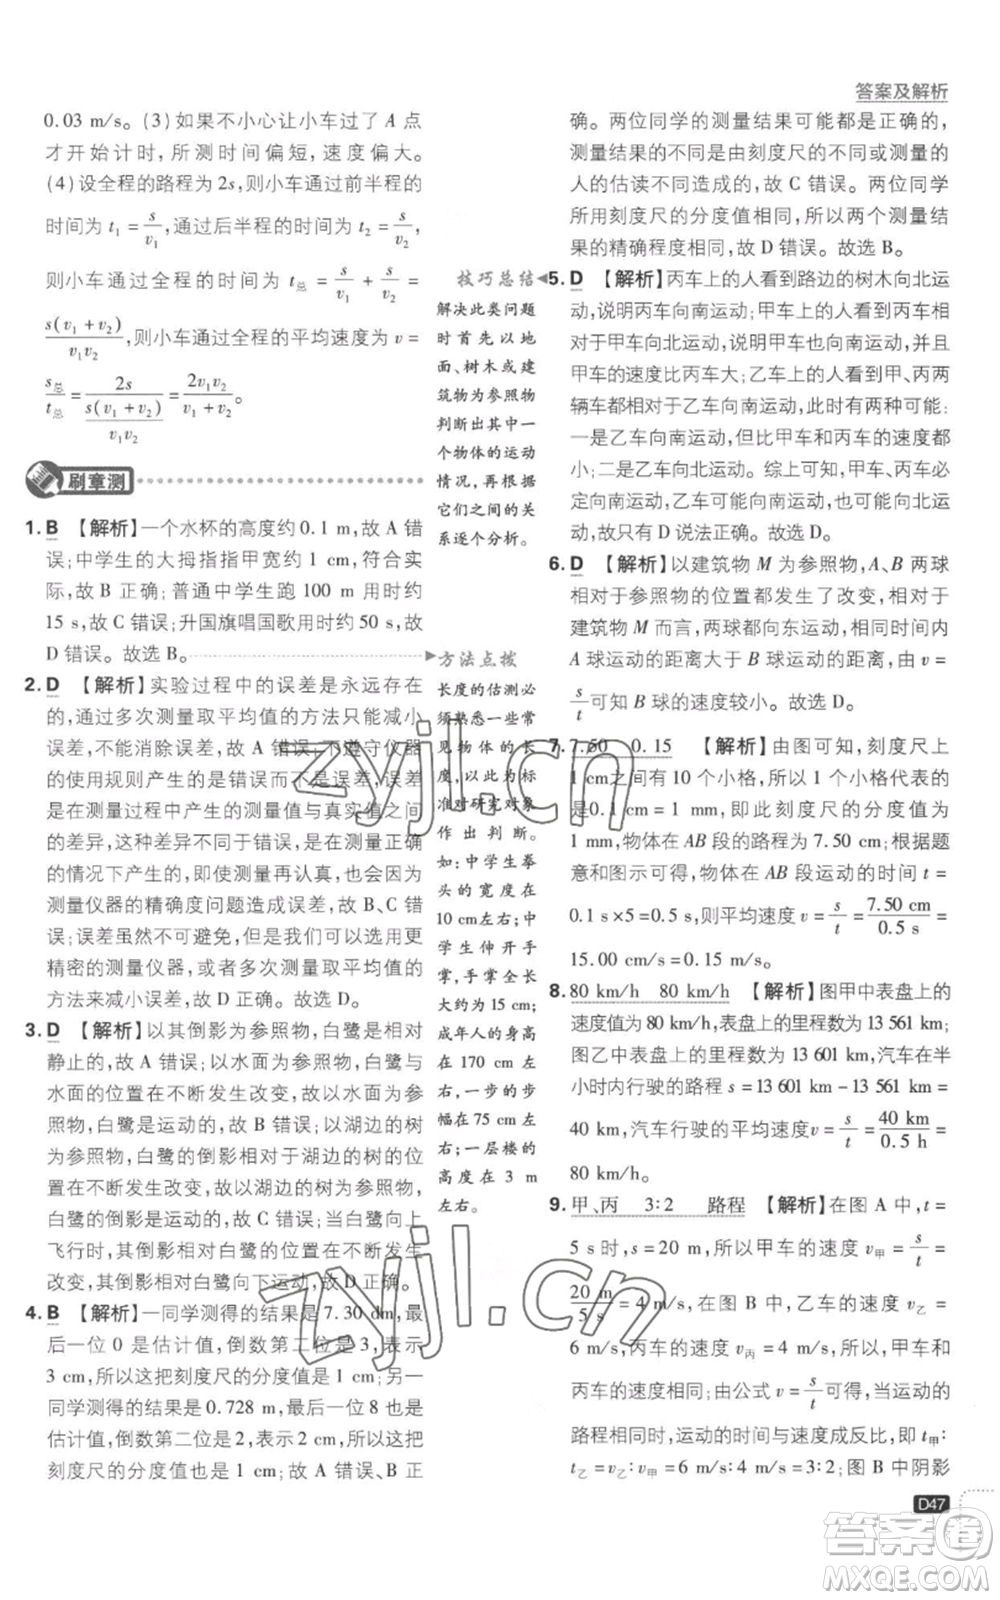 答案及解析
0.03 m/s。(3)如果不小心让小车过了 A 点
才开始计时,所测时间偏短,速度偏大。
(4)设全程的路程为 2s,则小车通过前半程的
时间为 t₁ = s/v₁,通过后半程的时间为 t₂ = s/v₂,
则小车通过全程的时间为 t总 = s/v₁ + s/v₂ =
s(v₁+v₂)/v₁v₂,则小车通过全程的平均速度为 v =
s总/t总 = 2s/(s(v₁+v₂)/v₁v₂) = 2v₁v₂/(v₁+v₂)。
刷章测
1. B 【解析】一个水杯的高度约 0.1 m,故 A 错
误;中学生的大拇指指甲宽约 1 cm,符合实
际,故 B 正确;普通中学生跑 100 m 用时约
15 s,故 C 错误;升国旗唱国歌用时约 50 s,故
D 错误。故选 B。
2. D 【解析】实验过程中的误差是永远存在
的,通过多次测量取平均值的方法只能减小
误差,不能消除误差,故 A 错误;不遵守仪器
的使用规则产生的是错误而不是误差,误差
是在测量过程中产生的测量值与真实值之间
的差异,这种差异不同于错误,是在正确测量
的情况下产生的,即使测量再认真,也会因为
测量仪器的精确度问题造成误差,故 B、C 错
误;误差虽然不可避免,但是我们可以选用更
精密的测量仪器,或者多次测量取平均值的
方法来减小误差,故 D 正确。故选 D。
3. D 【解析】以其倒影为参照物,白鹭是相对
静止的,故 A 错误;以水面为参照物,白鹭与
水面的位置在不断发生改变,故以水面为参
照物,白鹭是运动的,故 B 错误;以湖边的树
为参照物,白鹭的倒影相对于湖边的树的位
置在不断发生改变,故以湖边的树为参照物,
白鹭的倒影是运动的,故 C 错误;白鹭向上
飞行时,其倒影相对于白鹭的位置在不断发生
改变,其倒影相对白鹭向下运动,故 D 正确。
4. B 【解析】一同学测得的结果是 7.30 dm,最
后一位 0 是估计值,倒数第二位是 3,表示
3 cm,所以这把刻度尺的分度值是 1 cm;另一
同学测得的结果是 0.728 m,最后一位 8 也是
估计值,倒数第二位是 2,表示 2 cm,所以这把
刻度尺的分度值也是 1 cm;故 A 错误,B 正
技巧总结
解决此类问题
时首先以地
面、树木或建
筑物为参照物
判断出其中一
个物体的运动
情况,再根据
它们之间的关
系逐个分析。
方法点拨
长度的估测必
须熟悉一些常
见物体的长
度,以此为标
准对研究对象
作出判断。
如:中学生拳
头的宽度在
10 cm左右;中
学生伸开手
掌,手掌全长
大约为 15 cm;
成年人的身高
在 170 cm 左
右,一步的步
幅在 75 cm 左
右;一层楼的
高度在 3 m
左右。
确。两位同学的测量结果可能都是正确的,
测量结果的不同是由刻度尺的不同或测量
的人的估读不同造成的,故 C 错误。两位同学
所用刻度尺的分度值相同,所以两个测量结
果的精确程度相同,故 D 错误。故选 B。
5. D 【解析】丙车上的人看到路边的树木向北运
动,说明丙车向南运动;甲车上的人看到丙车相
对于甲车向北运动,说明甲车向南运动,并且
甲车的速度比丙车大;乙车上的人看到甲、丙两
辆车都相对于乙车向南运动,此时有两种可能:
一是乙车向南运动,但比甲车和丙车的速度都
小;二是乙车向北运动。综上可知,甲车、丙车必
定向南运动,乙车可能向南运动,也可能向北运
动,故只有 D 说法正确。故选 D。
6. D 【解析】以建筑物 M 为参照物,A、B 两球
相对于参照物的位置都发生了改变,相对于
建筑物 M 而言,两球都向东运动,相同时间内
A 球运动的距离大于 B 球运动的距离,由 v =
s/t 可知 B 球的速度较小。故选 D。
7. 7.50 0.15 【解析】由图可知,刻度尺上
1 cm之间有 10 个小格,所以 1 个小格代表的
是0.1 cm = 1 mm,即此刻度尺的分度值为
1 mm,物体在 AB 段的路程为 7.50 cm;根据题
意和图示可得,物体在 AB 段运动的时间 t =
0.1 s×5=0.5 s,则平均速度 v = s/t = 7.50 cm/0.5 s =
15.00 cm/s=0.15 m/s。
8. 80 km/h 80 km/h 【解析】图甲中表盘上的
速度值为 80 km/h,表盘上的里程数为 13 561 km;
图乙中表盘上的里程数为 13 601 km,汽车在半
小时内行驶的路程 s = 13 601 km - 13 561 km =
40 km,汽车行驶的平均速度 v = s/t = 40 km/0.5 h =
80 km/h。
9. 甲、丙 3∶2 路程 【解析】在图 A 中,t =
5 s时,s = 20 m,所以甲车的速度 v甲 = s/t =
20 m/5 s = 4 m/s,在图 B 中,乙车的速度 v乙 =
6 m/s,丙车的速度 v丙 = 4 m/s,所以,甲车和
丙车的速度相同;由公式 v = s/t 可得,当运动的
路程相同时,运动的时间与速度成反比,即 t甲∶
t乙 = v乙∶v甲 = 6 m/s∶4 m/s = 3∶2;图 B 中阴影
D47
zyjl.cn
zyjl.cn
答案圈
MXQE.COM